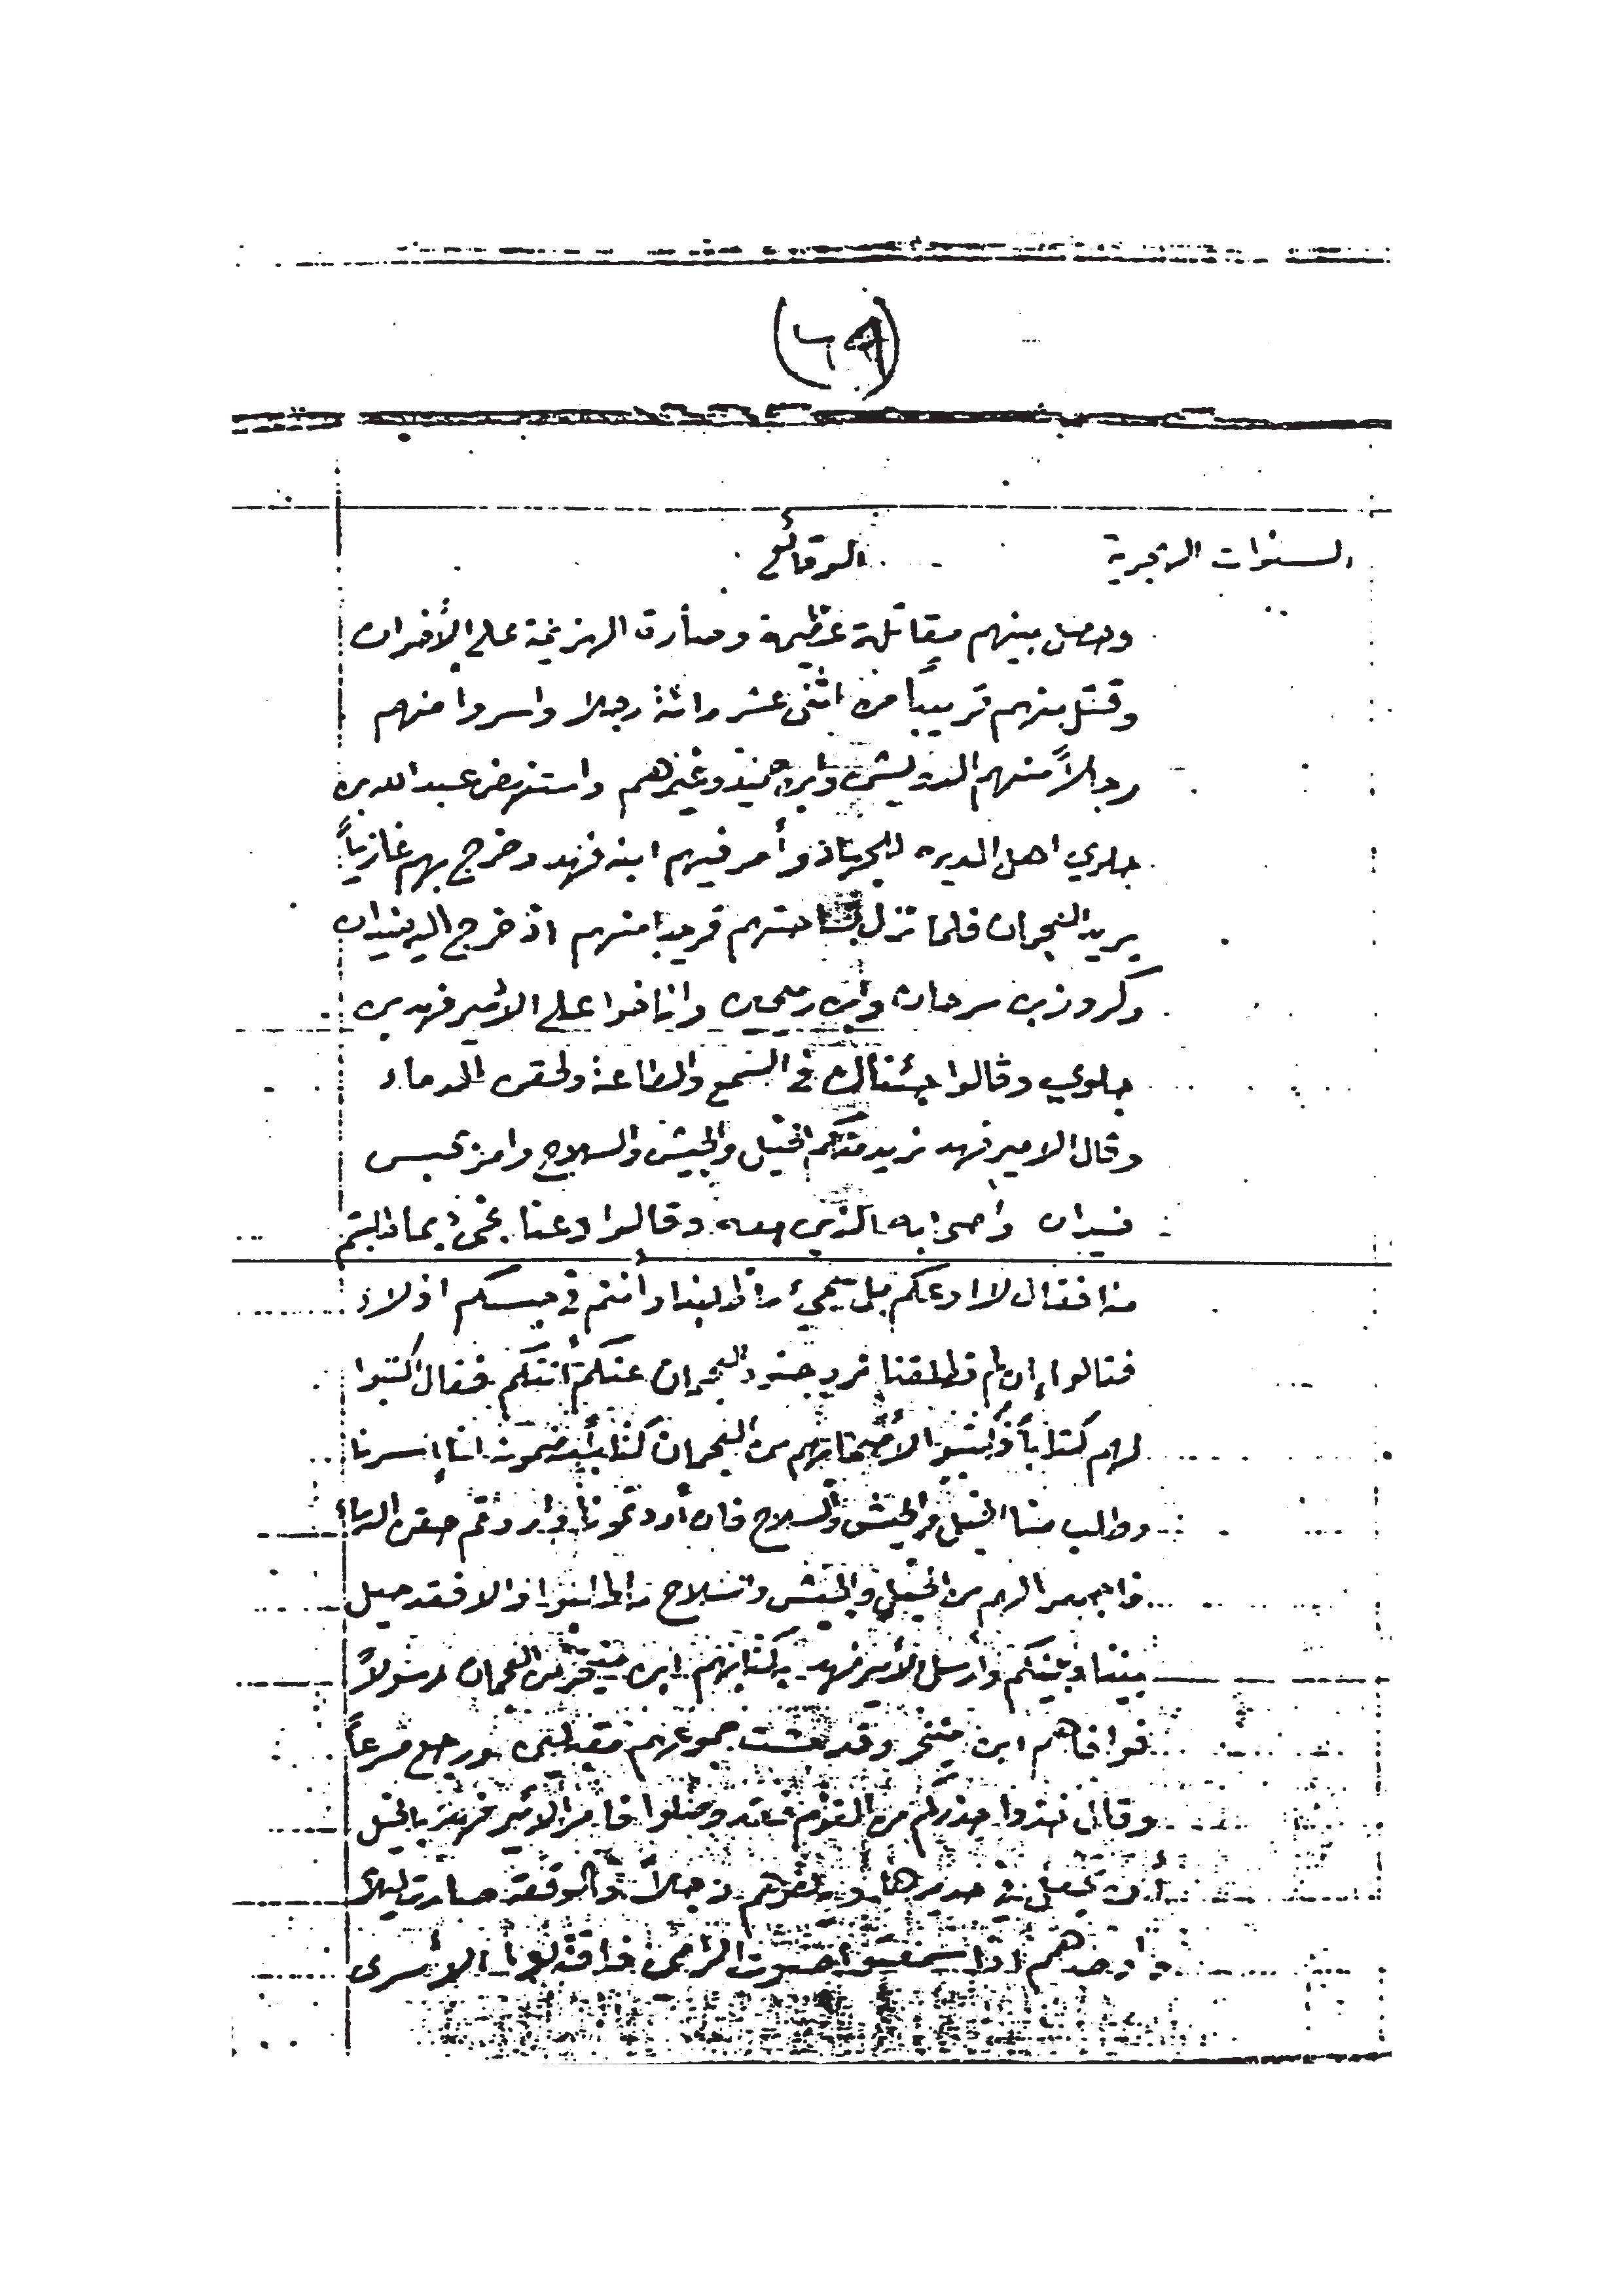 (٦٩)
السنوات الهجرية الوقائع
وحصل بينهم مقاتلة عظيمة وصارة الهزيمة على الأخوان
وقتل منهم قريباً من اثنى عشر مائة رجلا واسروا منهم
رجالاً منهم الدويش وابن حميد وغيرهم واستنهض عبدالله بن
جلوي اهل الديره للجهاد وأمر فيهم ابنه فهد وخرج بهم غازياً
يريد العجمان فلما نزل بساحتهم قريبا منهم اذ خرج اليه فيدان
وكروز بن سرحان وابن رميحين واناخوا على الأمير فهد بن
جلوي وقالوا جئناك في السمع والطاعة ولحقن الدماء
وقال الامير فهد نريد منكم الخيل والجيش والسلاح وامر بحبس
فيدان وأصحابه الذين معه وقالوا دعنا نجئ بما طلبتم
منا فقال لا ادعكم بل يجئ ما طلبنا وانتم في حبسكم اذلاء
فقالوا إن لم تطلقنا نرد جنود العجمان عنكم أتتكم فقال اكتبوا
لهم كتاباً فكتبوا لأصحابهم من العجمان كتاباً مضمونه اننا إنسرنا
وطلب منا الخيل والجيش والسلاح فان أردتمونا وأردتم حقن الدماء
فاجمعوا لهم من الخيل والجيش والسلاح ما طلبوا والا فقد حيل
بيننا وبينكم وأرسل الأمير فهد بكتابهم ابن منيخر من العجمان رسولاً
فوافاهم ابن منيخر وقد مشت جموعهم مقبلين ورجع مسرعاً
وقال خذوا حذركم من القوم فقد وصلوا فامر الأمير فهد بالخيل
أن تجعل في حديدها رجالاً والوقعة صارت ليلاً
اذا سمعتوا صوت الرمي فاقتلوا الأسرى